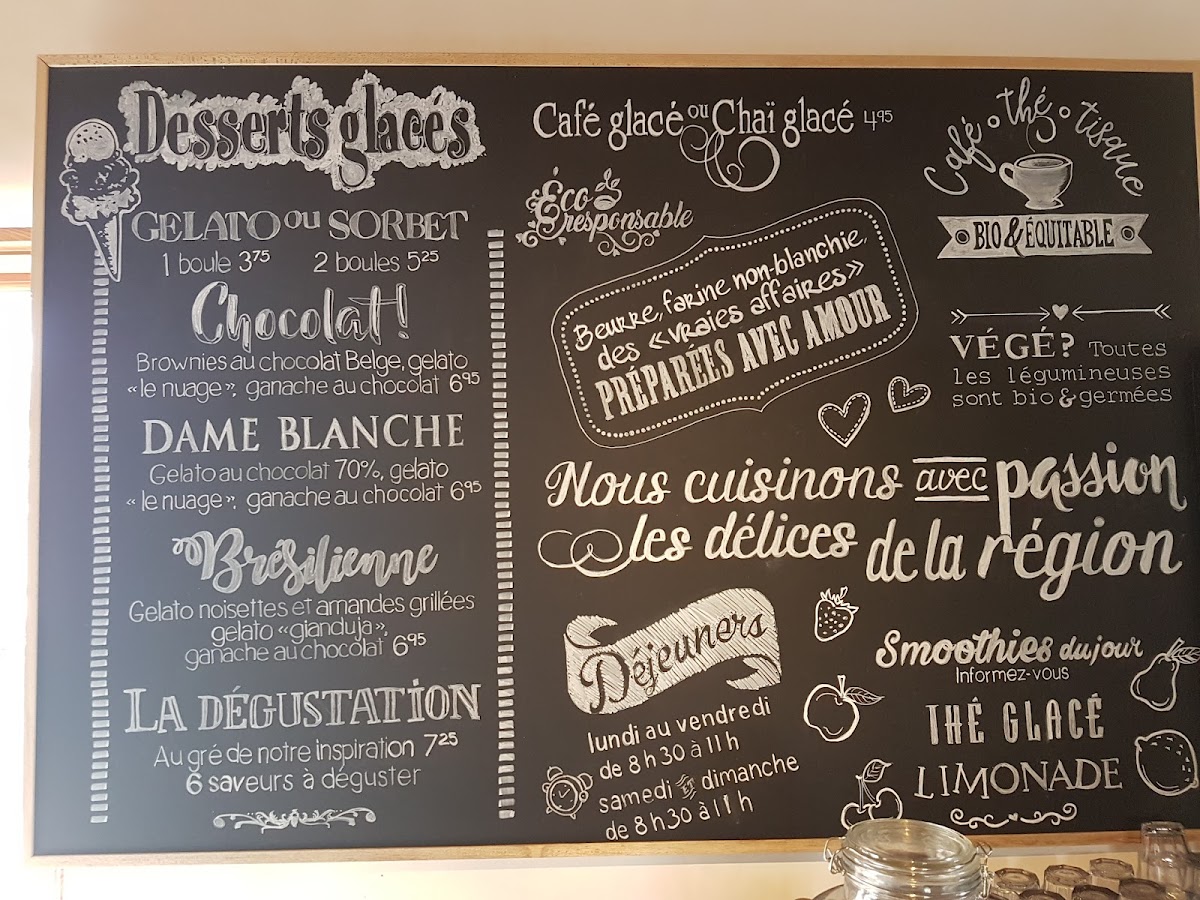 Desserts glacés
GELATO OU SORBET
1 boule 3.75 2 boules 5.25
Chocolat!
Brownies au chocolat Belge, gelato
« le nuage », ganache au chocolat 6.95
DAME BLANCHE
Gelato au chocolat 70%, gelato
« le nuage », ganache au chocolat 6.95
Brésilienne
Gelato noisettes et amandes grillées
gelato «gianduja»,
ganache au chocolat 6.95
LA DÉGUSTATION
Au gré de notre inspiration 7.25
6 saveurs à déguster
Café glacé ou Chaï glacé 4.95
Éco
responsable
Beurre, farine non-blanchie,
des «vraies affaires»
PRÉPARÉES AVEC AMOUR
Café • thé • tisane
BIO & ÉQUITABLE
VÉGÉ? Toutes
les légumineuses
sont bio & germées
Nous cuisinons avec passion
les délices de la région
Déjeuners
lundi au vendredi
de 8h30 à 11h
samedi et dimanche
de 8h30 à 11h
Smoothies du jour
Informez-vous
THÉ GLACÉ
LIMONADE